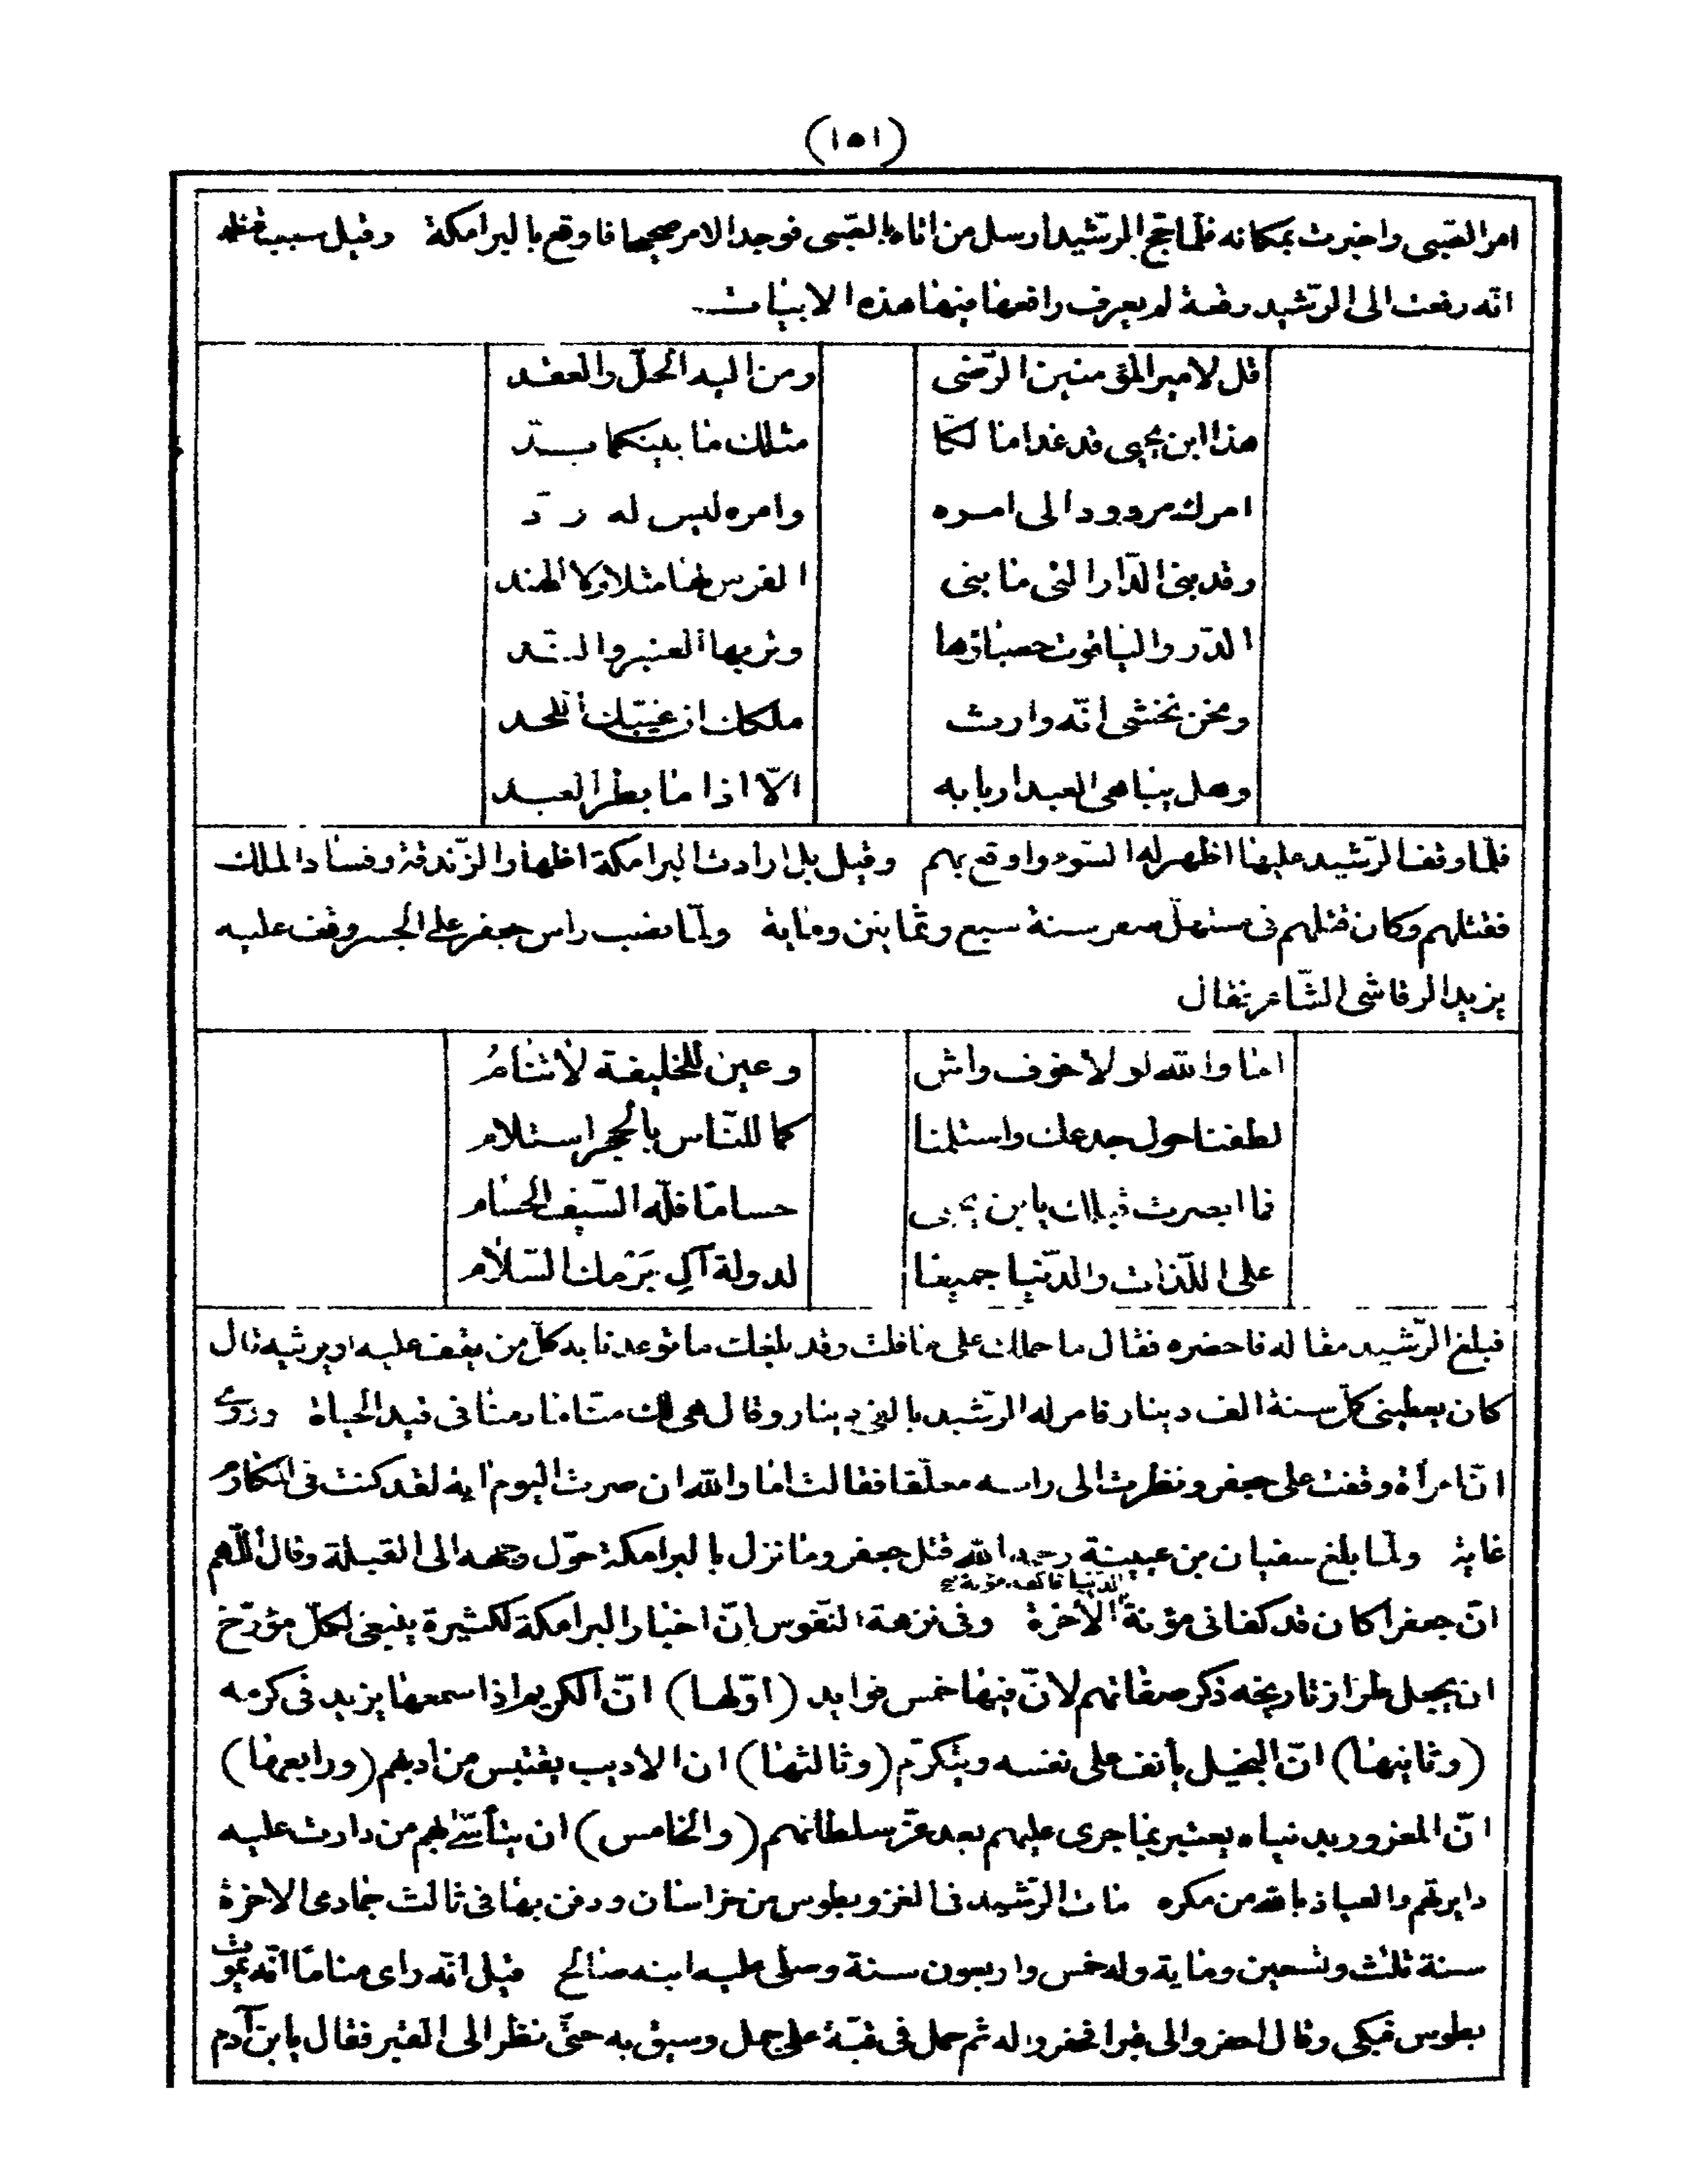 (١٥١)
امر الصّبى واخبرت بمكانه فلمّا حجّ الرّشيد ارسل من اتاه بالصّبى فوجد الامر صحيحا فاوقع بالبرامكة وقيل سبب قتله
انّه رفعت الى الرّشيد رقعة لم يعرف رافعها فيها هذه الابيات
قل لامير المؤمنين الرّضى ومن اليه الحلّ والعقد
هذا ابن يحيى قد غدا مالكا مثلك ما بينكما بدّ
امرك مردود الى امره وامره ليس له ردّ
وقد بنى الدّار التى ما بنى الفرس لها مثلا ولا الهند
الدّر والياقوت حصباؤها وتربها العنبر والندّ
ونحن نخشى انّه وارث ملكك ان غيّبك اللحد
وهل يباهى العبد اربابه الّا اذا ما بطر العبد
فلمّا وقف الرّشيد عليها اظهر له السّوء واوقع بهم وقيل بل ارادت البرامكة اظهار الزّندقة وفساد الملك
فقتلهم وكان قتلهم فى مستهلّ صفر سنة سبع وثمانين وماية ولمّا نصب راس جعفر على الجسر وقف عليه
يزيد الرقاشى الشّاعر فقال
اما والله لولا خوف واش وعين للخليفة لا تنام
لطفنا حول جدعك واستلمنا كما للنّاس بالحجر استلام
فما ابصرت قبلك يابن يحيى حساما فلّه السّيف الحسام
على اللّذات والدّنيا جميعا لدولة آل بَرْمك السّلام
فبلغ الرّشيد مقاله فاحضره فقال ما حملك على ما قلت وقد بلغك ما توعدنا به كلّ من يقف عليه او يرثيه قال
كان يعطينى كلّ سنة الف دينار فامر له الرّشيد بالفى دينار وقال هى لك منّا ما دمنا فى قيد الحياة وروى
انّ امرأة وقفت على جعفر ونظرت الى راسه معلّقا فقالت اما والله ان صرت اليوم اية لقد كنت فى المكارم
غاية ولمّا بلغ سفيان من عيينة رحمه الله قتل جعفر وما نزل بالبرامكة حوّل وجهه الى القبلة وقال اللّهم
انّ جعفرا كان قد كفانى مؤنة الدّنيا فاكفه مؤنة الاخرة وفى نزهة النّفوس انّ اخبار البرامكة لكثيرة ينبغى لكلّ مؤرّخ
ان يجعل طراز تاريخه ذكر صفاتهم لانّ فيها خمس فوايد (اوّلها) انّ الكريم اذا سمعها يزيد فى كرمه
(وثانيها) انّ البخيل يأنف على نفسه ويتكرّم (وثالثها) ان الاديب يقتبس من ادبهم (ورابعها)
انّ المغرور بدنياه يعتبر بما جرى عليهم بعد عزّ سلطانهم (والخامس) ان يتأسّى بهم من دارت عليه
دايرتهم والعياذ بالله من مكره مات الرّشيد فى الغزو بطوس من خراسان ودفن بها فى ثالث جمادى الاخرة
سنة ثلث وتسعين وماية وله خمس واربعون سنة وصلّى عليه ابنه صالح قيل انّه راى مناما انّه يموت
بطوس فبكى وقال احفروا لى قبرا فحفروا له ثم حمل فى قبّة على جمل وسيق به حتّى نظر الى القبر فقال يابن آدم